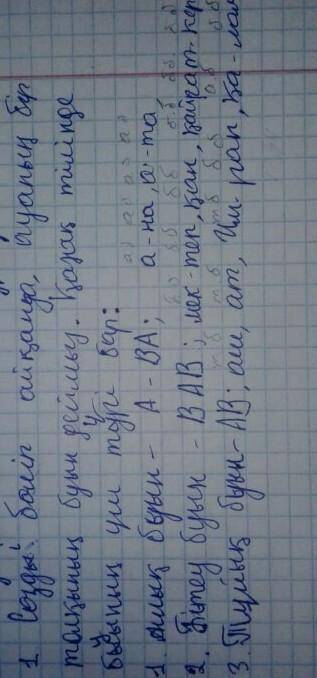 1. Сөзді бөліп айқанда, ауаның бір
толқынын буын дейміз. Қазақ тілінде
буынның үш түрі бар:
1. Ашық буын - А - ВА; а-на, а-та,
2. Бітеу буын - ВАВ; мек-теп, қан, қайрат-кер
3. Тұйық буын - АВ; аш, ат, Ұл-pan, қа-лам